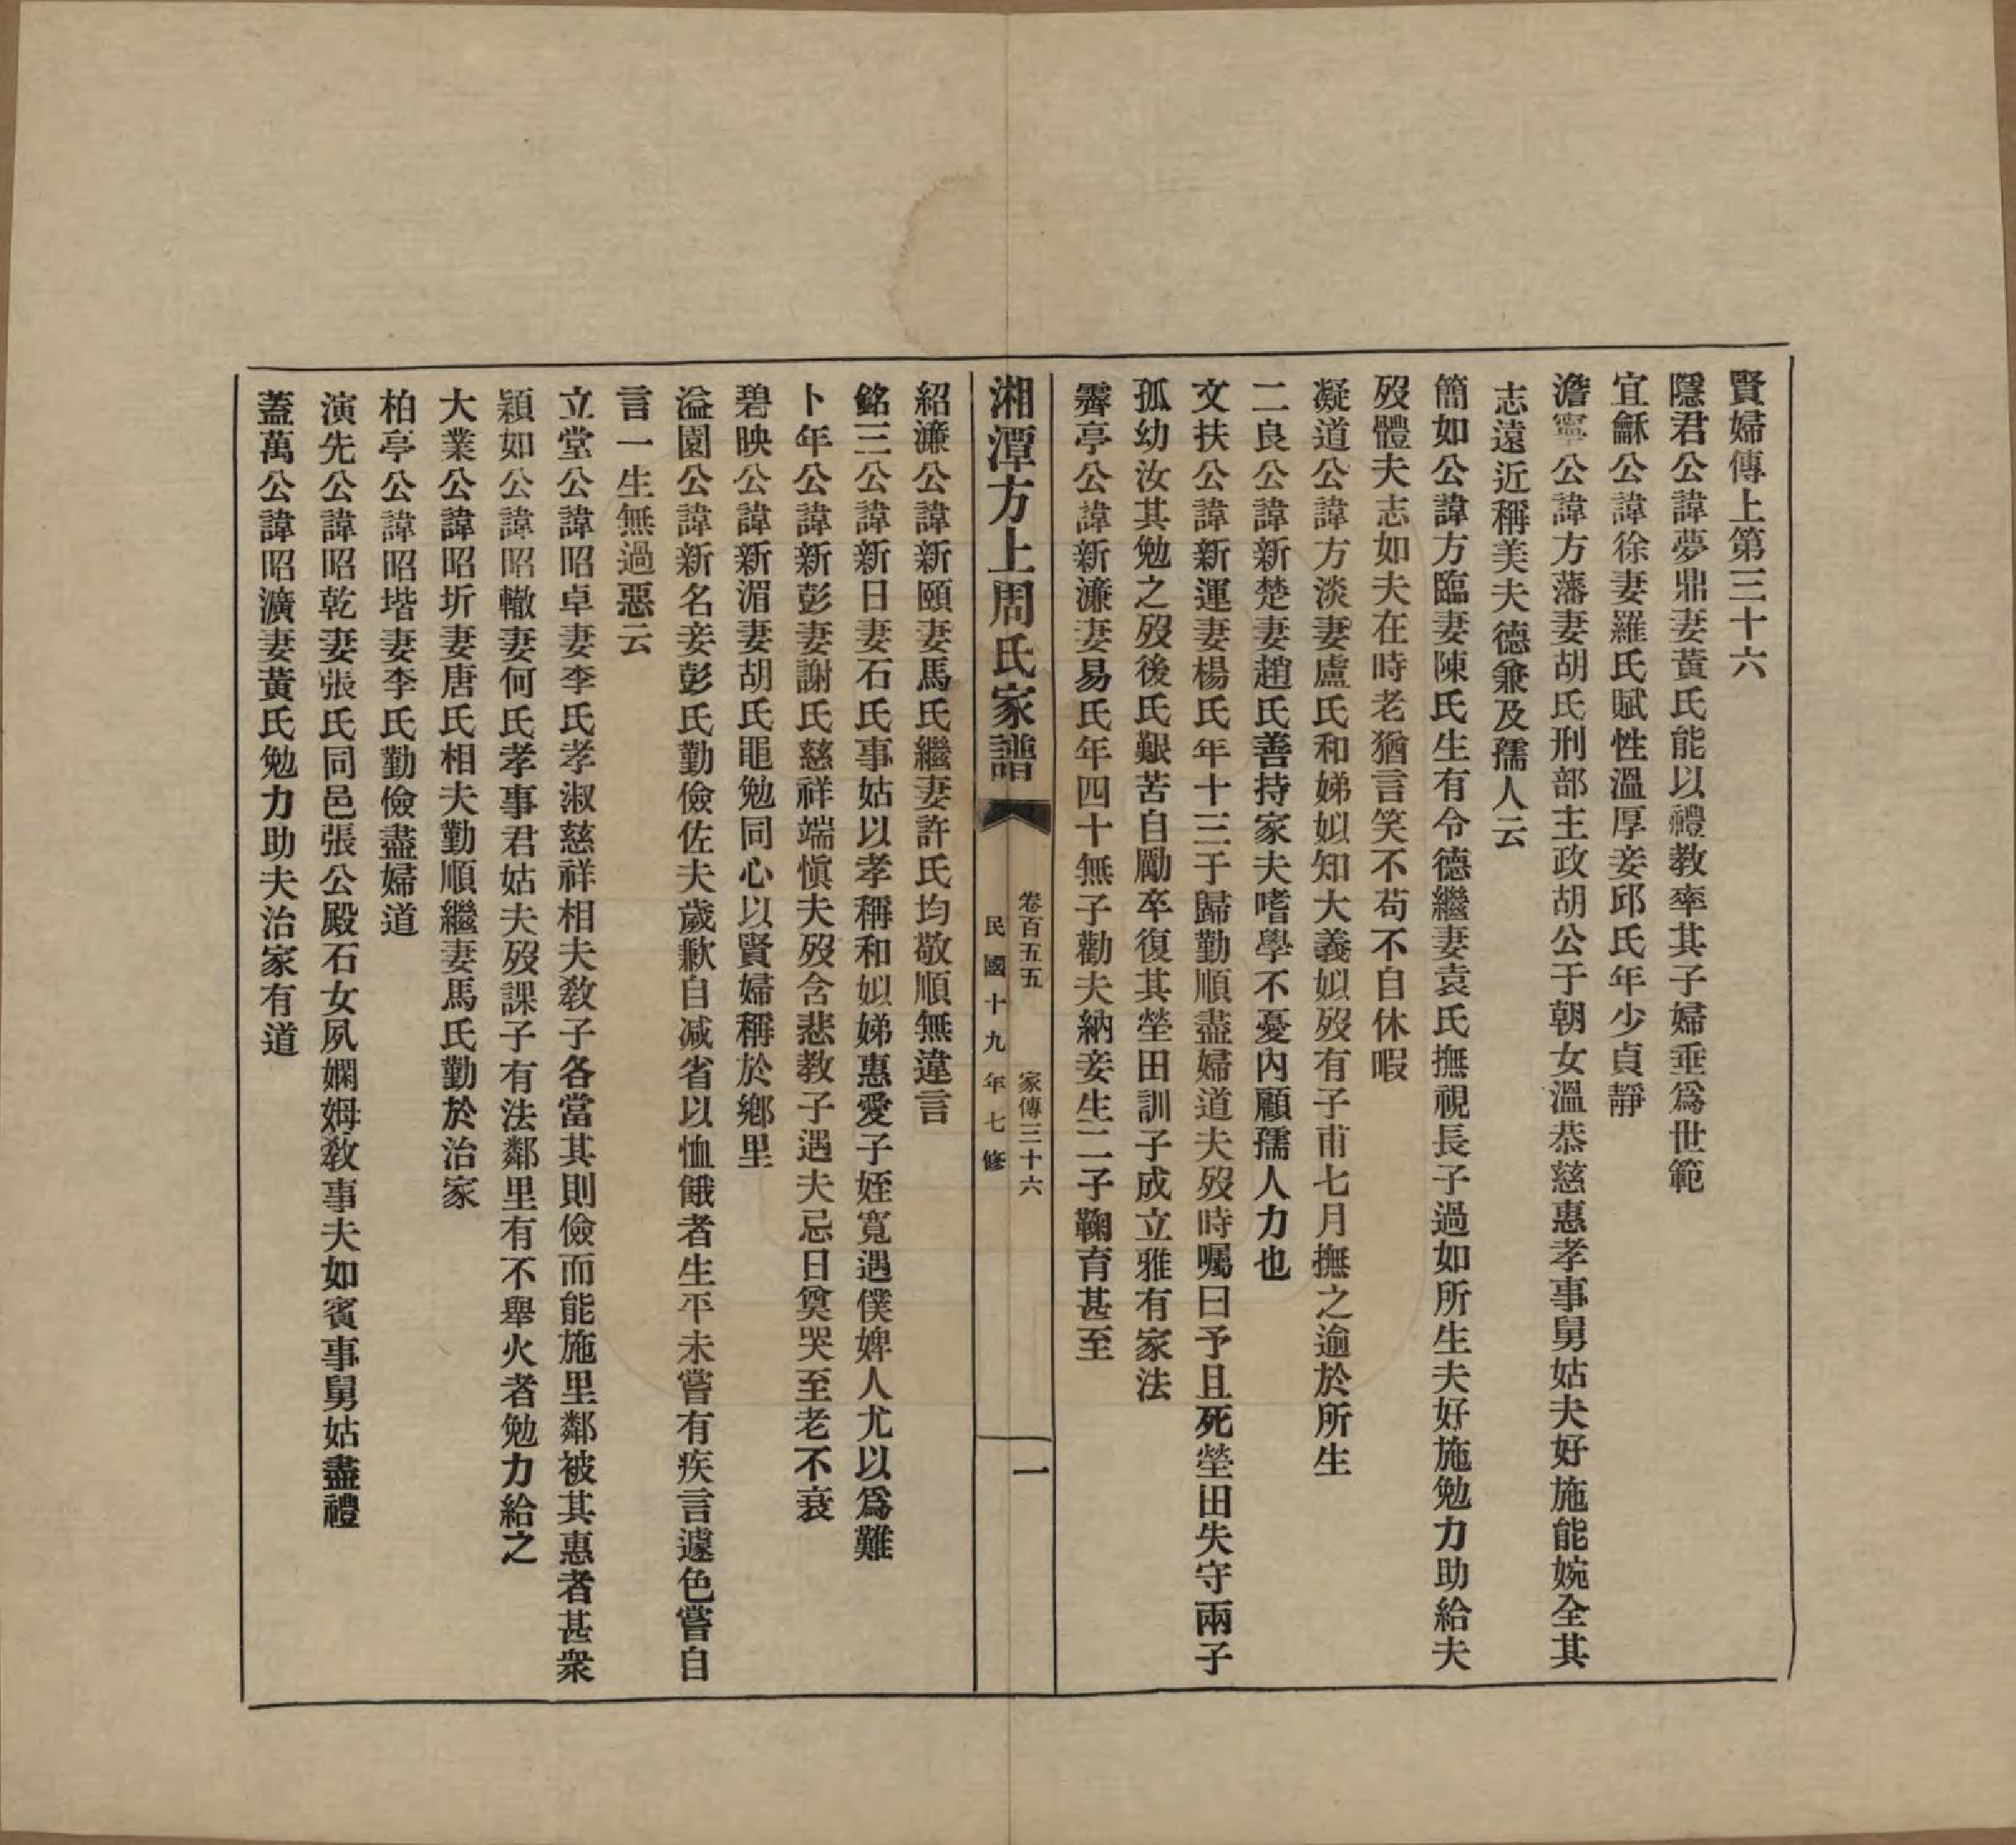 賢婦傳上第三十六
隱君公諱夢鼎妻黃氏能以禮教率其子婦垂爲世範
宜龢公諱徐妻羅氏賦性溫厚妾邱氏年少貞靜
澹寧公諱方藩妻胡氏刑部主政胡公于朝女溫恭慈惠孝事舅姑夫好施能婉全其
志遠近稱美夫德兼及孺人云
簡如公諱方臨妻陳氏生有令德繼妻袁氏撫視長子過如所生夫好施勉力助給夫
歿體夫志如夫在時老猶言笑不苟不自休暇
凝道公諱方淡妻盧氏和娣姒知大義姒歿有子甫七月撫之逾於所生
二良公諱新楚妻趙氏善持家夫嗜學不憂內顧孺人力也
文扶公諱新運妻楊氏年十三于歸勤順盡婦道夫歿時囑曰予且死塋田失守兩子
孤幼汝其勉之歿後氏艱苦自勵卒復其塋田訓子成立雅有家法
霽亭公諱新濂妻易氏年四十無子勸夫納妾生二子鞠育甚至
湘潭方上周氏家譜
卷百五五 家傳三十六
民國十九年七修
一
紹濂公諱新頤妻馬氏繼妻許氏均敬順無違言
銘三公諱新日妻石氏事姑以孝稱和姒娣惠愛子姪寬遇僕婢人尤以爲難
卜年公諱新彭妻謝氏慈祥端愼夫歿含悲教子遇夫忌日奠哭至老不衰
碧映公諱新湄妻胡氏黽勉同心以賢婦稱於鄕里
溢園公諱新名妾彭氏勤儉佐夫歲歉自減省以恤餓者生平未嘗有疾言遽色嘗自
言一生無過惡云
立堂公諱昭卓妻李氏孝淑慈祥相夫教子各當其則儉而能施里鄰被其惠者甚衆
穎如公諱昭轍妻何氏孝事君姑夫歿課子有法鄰里有不舉火者勉力給之
大業公諱昭圻妻唐氏相夫勤順繼妻馬氏勤於治家
柏亭公諱昭堦妻李氏勤儉盡婦道
演先公諱昭乾妻張氏同邑張公殿石女夙嫻姆敎事夫如賓事舅姑盡禮
蓋萬公諱昭瀇妻黃氏勉力助夫治家有道